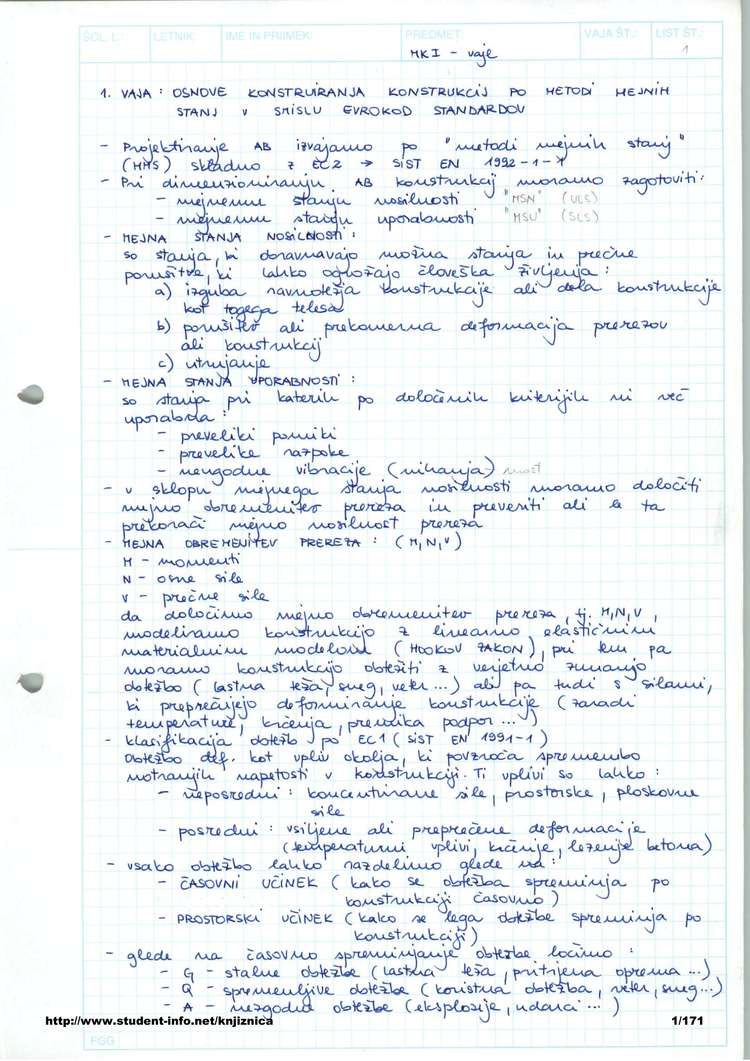 ŠOL. L.: LETNIK: IME IN PRIIMEK: PREDMET: VAJA ŠT.: LIST ŠT.:
MKI - vaje 1
1. VAJA : OSNOVE KONSTRUIRANJA KONSTRUKCIJ PO METODI MEJNIH
STANJ V SMISLU EVROKOD STANDARDOV
- Projektiranje AB izvajamo po "metodi mejnih stanj"
(MMS) skladno z EC2 → SIST EN 1992-1-1
- Pri dimenzioniranju AB konstrukcij moramo zagotoviti:
- mejnemu stanju nosilnosti "MSN" (ULS)
- mejnemu stanju uporabnosti "MSU" (SLS)
- MEJNA STANJA NOSILNOSTI :
so stanja, ki obravnavajo možna stanja in prečne
porušitve, ki lahko ogrožajo človeška življenja :
a) izguba ravnotežja konstrukcije ali dela konstrukcije
kot togega telesa
b) porušitev ali prekomerna deformacija prerezov
ali konstrukcij
c) utrujanje
- MEJNA STANJA UPORABNOSTI :
so stanja pri katerih po določenih kriterijih ni več
uporabna :
- preveliki pomiki
- prevelike razpoke
- neugodne vibracije (nihanja) most
- v sklopu mejnega stanja nosilnosti moramo določiti
mejno obremenitev prereza in preveriti ali le ta
prekorači mejno nosilnost prereza
- MEJNA OBREMENITEV PREREZA : (M,N,V)
M - momenti
N - osne sile
V - prečne sile
da določimo mejno obremenitev prereza, tj. M,N,V,
modeliramo konstrukcijo z linearno elastičnim
materialnim modelom (HOOKOV ZAKON), pri tem pa
moramo konstrukcijo obtežiti z verjetno zunanjo
obtežbo (lastna teža, sneg, veter ...) ali pa tudi s silami,
ki preprečujejo deformiranje konstrukcije (zaradi
temperature, krčenja, premika podpor ...)
- klasifikacija obtežb po EC1 (SIST EN 1991-1)
Obtežbo def. kot vpliv okolja, ki povzroča spremembo
notranjih napetosti v konstrukciji. Ti vplivi so lahko :
- neposredni : koncentrirane sile, prostorske, ploskovne
sile
- posredni : vsiljene ali preprečene deformacije
(temperaturni vplivi, krčenje, lezenje betona)
- vsako obtežbo lahko razdelimo glede na :
- ČASOVNI UČINEK (kako se obtežba spreminja po
konstrukciji časovno)
- PROSTORSKI UČINEK (kako se lega obtežbe spreminja po
konstrukciji)
- glede na časovno spreminjanje obtežbe ločimo :
- G - stalne obtežbe (lastna teža, pritrjena oprema ...)
- Q - spremenljive obtežbe (koristna obtežba, veter, sneg...)
- A - nezgodne obtežbe (eksplozije, udarci ... )
http://www.student-info.net/knjiznica 1/171
FGG